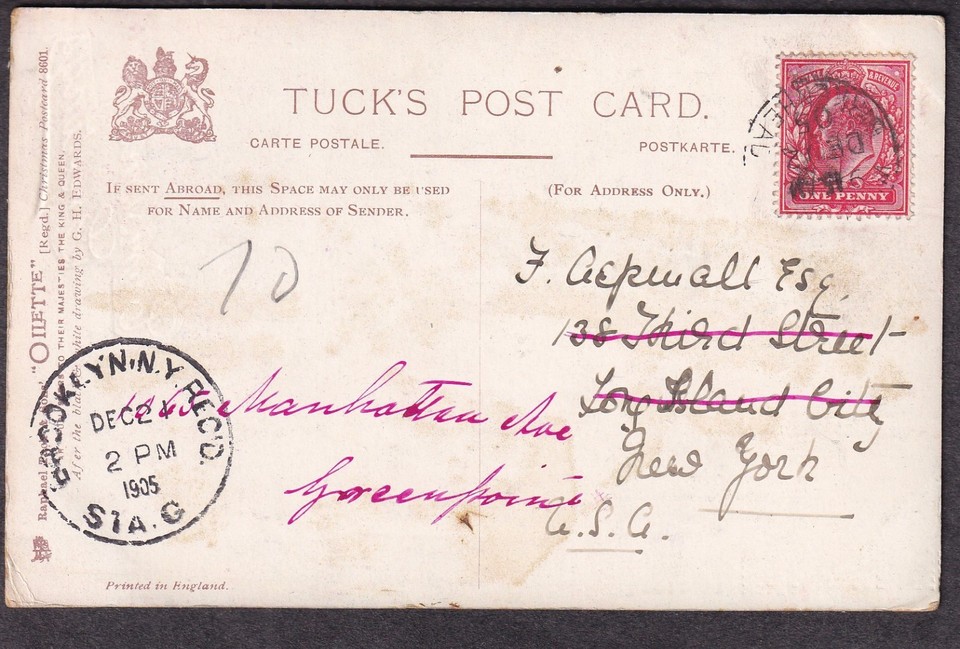 TUCK'S POST CARD.
CARTE POSTALE.
POSTKARTE.
IF SENT ABROAD, THIS SPACE MAY ONLY BE USED
FOR NAME AND ADDRESS OF SENDER.
(FOR ADDRESS ONLY.)
& REVENUE
ONE PENNY
DE
05
10
F. Aspinall Esq
138 Third Street
Long Island City
New York
U.S.A.
Manhattan Ave
Greenpoint
BROOKLYN, N.Y. REC'D.
DEC 24
2 PM
1905
STA. G
Raphael
"OILETTE" [Regd.] Christmas Postcard 8601.
TO THEIR MAJESTIES THE KING & QUEEN.
After the black & white drawing by G. H. EDWARDS.
Printed in England.